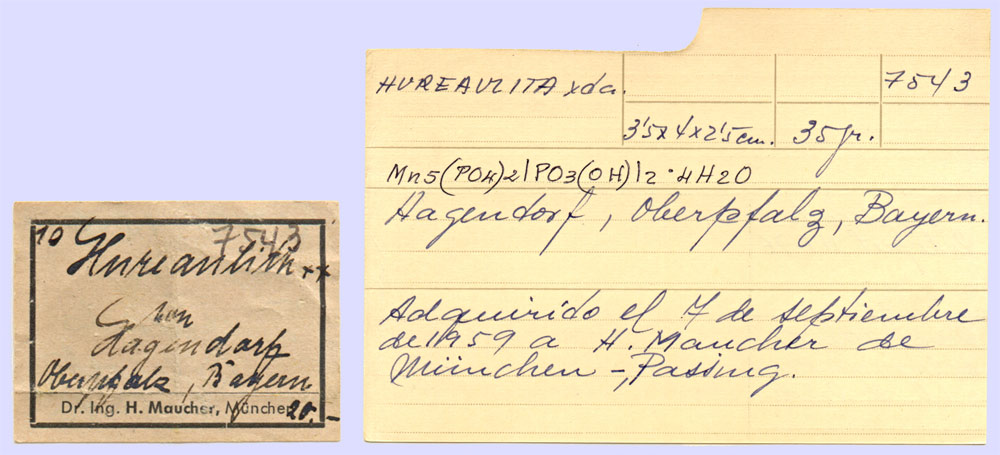 10 7543
Hureaulith xx
von
Hagendorf
Oberpfalz, Bayern
Dr. Ing. H. Maucher, München 20.-
HUREAULITA xda. 7543
3'5x4x2'5cm. 35gr.
Mn5(PO4)2|PO3(OH)|2·4H2O
Hagendorf, Oberpfalz, Bayern.
Adquirido el 7 de septiembre
de 1959 a H. Maucher de
München-, Passing.